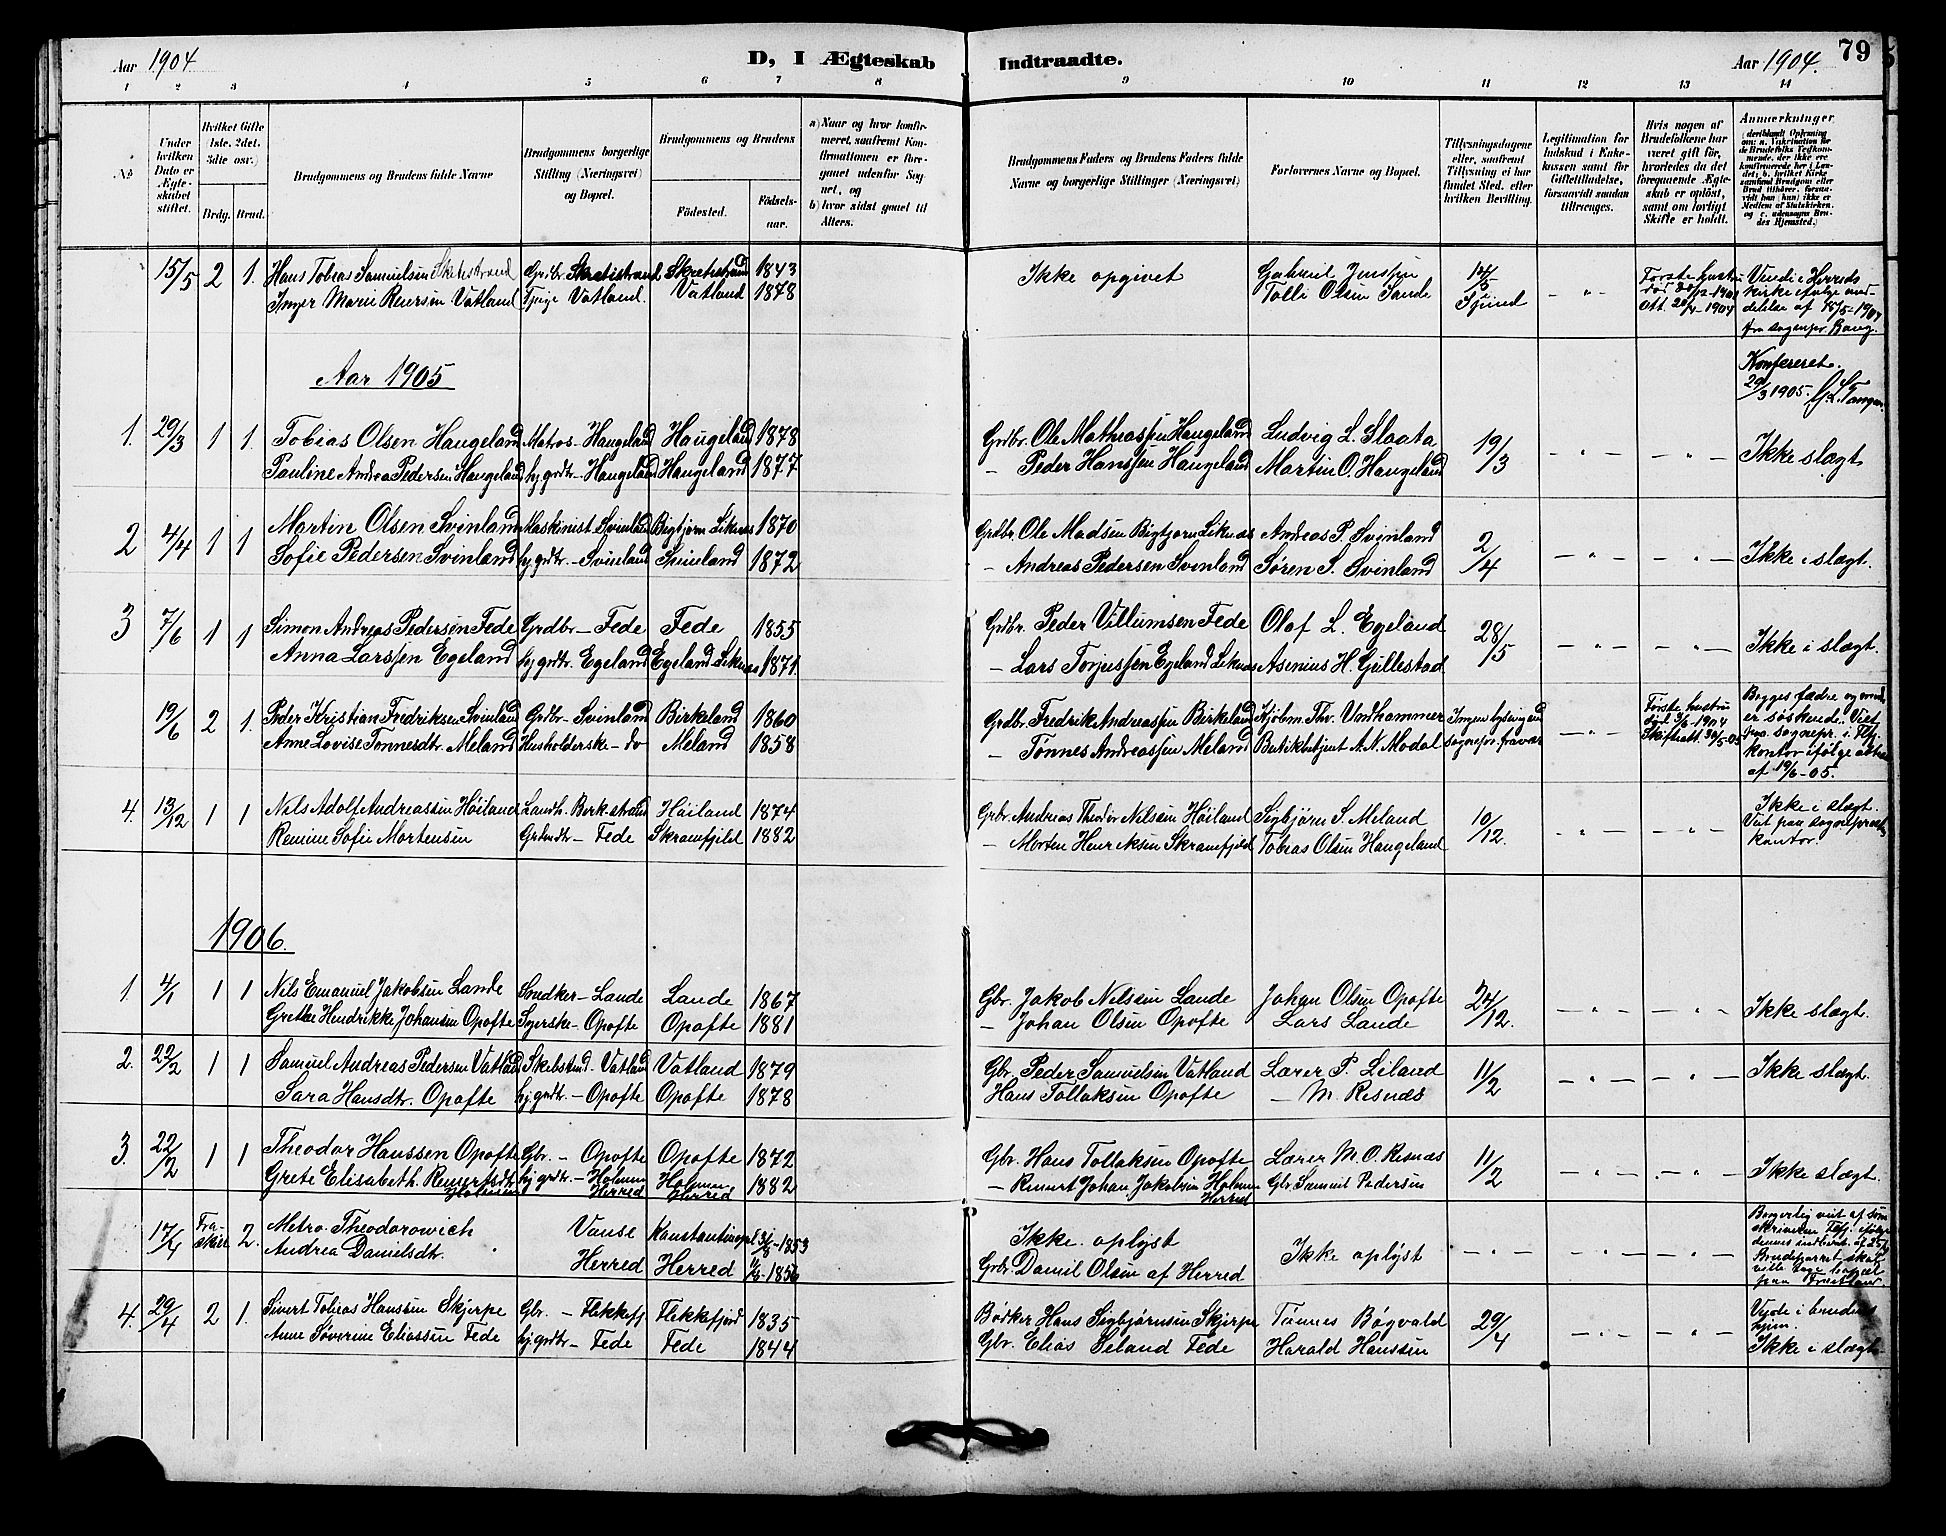 Aar 1904
D, I Ægteskab Indtraadte.
Aar 1904.
79
1 2 3 4 5 6 7 8 9 10 11 12 13 14
No
Under hvilken Dato er Ægteskabet stiftet.
Hvilket Gifte 1ste, 2det, 3die osv.)
Brdg. Brud.
Brudgommens og Brudens fulde Navne
Brudgommens borgerlige Stilling (Næringsvei) og Bopæl.
Brudgommens og Brudens
Födested.
Födselsaar.
a) Naar og hvor konfirmeret, saafremt Konfirmationen er foregaaet udenfor Sognet, og
b) hvor sidst gaaet til Alters.
Brudgommens Faders og Brudens Faders fulde Navne og borgerlige Stillinger (Næringsvei)
Forlovernes Navne og Bopæl.
Tillysningsdagene eller, saafremt Tillysning ei har fundet Sted, efter hvilken Bevilling.
Legitimation for Indskud i Enkekassen samt for Giftetilladelse, forsaavidt saadan tiltrænges.
Hvis nogen af Brudefolkene har været gift för, hvorledes da det foregaaende Ægteskab er oplöst, samt om lovligt Skifte er holdt.
Anmærkninger
15/5 2 1. Hans Tobias Samuelsen Sketestrand Grdbr. Sketestrand Sketestrand 1843 Ikke opgivet Gabriel Jenssen 14/5
Inger Marie Reiersen Vatland Tjpige Vatland. Vatland 1878 Tolli Olsen Sande
Aar 1905
Konfereret.
29/3 1905.
1. 29/3 1 1. Tobias Olsen Haugeland Matros - Haugeland Haugeland 1878 Grdbr. Ole Mathiassen Haugeland Ludvig L. Slaata 19/3 Ikke slægt
Pauline Andrea Pedersen Haugeland hj. grdtr. - Haugeland Haugeland 1877 - Peder Hanssen Haugeland Martin O. Haugeland
2 4/4 1 1 Martin Olsen Svinland Maskinist. Svinland Bigtjørn Liknes 1870 Grdbr. Ole Madsen Bigtjørn Liknes Andreas P. Svinland 2/4 Ikke i slægt.
Sofie Pedersen Svinland hj. grdtr. - Svinland Svinland 1872 - Andreas Pedersen Svinland Søren S. Svinland
3 7/6 1 1 Simon Andreas Pedersen Fede Grdbr - Fede Fede 1855 Grdbr. Peder Villumsen Fede Olaf L. Egeland 28/5 Ikke i slægt.
Anna Larssen Egeland hj. grdtr. Egeland Egeland Liknes 1871. - Lars Torjussen Egeland Liknes Asenius H. Gullestad
19/6 2 1. Peder Kristian Fredriksen Svinland Grdbr - Svinland Birkeland 1860 Grdbr. Fredrik Andreassen Birkeland Kjøbm. Thr. Undhammer Ingen lysning Første hustru død 3/6 - 1904 Begges fædre
Anne Lovise Tønnesdtr. Meland Husholderske - do Meland 1858 - Tønnes Andreassen Meland Butikbetjent A. N. Modal er søskende. Viet
kontor ifølge
af 19/6 - 05.
4. 13/12 1 1 Nils Adolf Andreassen Høiland Landh. Berkstrand Høiland 1874 Grbr. Andreas Theodor Nilsen Høiland Sigbjørn S. Meland 10/12. Ikke i slægt.
Remine Sofie Mortensen Grdmdtr - Fede Skranefjeld 1882 - Morten Henriksen Skranefjeld Tobias Olsen Haugeland Viet paa sognepræst. kontor.
1906.
1. 4/1 1 1 Nils Emanuel Jakobsen Lande Snedker - Lande Lande 1867 Gbr. Jakob Nilssen Lande Johan Olsen Opofte 24/12. Ikke slægt.
Grethe Hendrikke Johansen Opofte Syerske - Opofte Opofte 1881 - Johan Olsen Opofte Lars Lande
2. 22/2 1 1 Samuel Andreas Pedersen Vatland Skibstmd. Vatland Vatland 1879 Gbr. Peder Samuelsen Vatland Lærer P. Liland 11/2 Ikke slægt.
Sara Hansdtr. Opofte hj. grdtr. - Opofte Opofte 1878 Hans Tollaksen Opofte - M. Risnæs
3. 22/2 1 1 Theodor Hanssen Opofte Gbr. - Opofte Opofte 1872 Gbr. Hans Tollaksen Opofte Lærer M. O. Risnæs 11/2 Ikke slægt.
Grete Elisabeth Reinertsdtr. Holmen hj. grdtr. - Holmen Herred Holmen Herred 1882 - Reinert Johan Jakobsen Holmen Herred Gbr. Samuel Pedersen
17/4 Fraskilt 2. Metro Theodorowich Vanse Konstantinopel 1853 Ikke oplyst Ikke oplyst
Andrea Danielsdtr. Herred Herred 1856 Grdbr. Daniel Olsen af Herred
4. 29/4 2 1. Sivert Tobias Hanssen Skjerpe Gbr. - Flekkefj. Flekkefjord 1835 Bødker Hans Sigbjørnsen Skjerpe Tønnes Bøgvald 29/4 Viede i brudens hjem.
Anne Søverine Eliassen Fede hj. grdtr - Fede Fede 1844 Gbr. Elias Seland Fede Harald Hanssen Ikke i slægt.